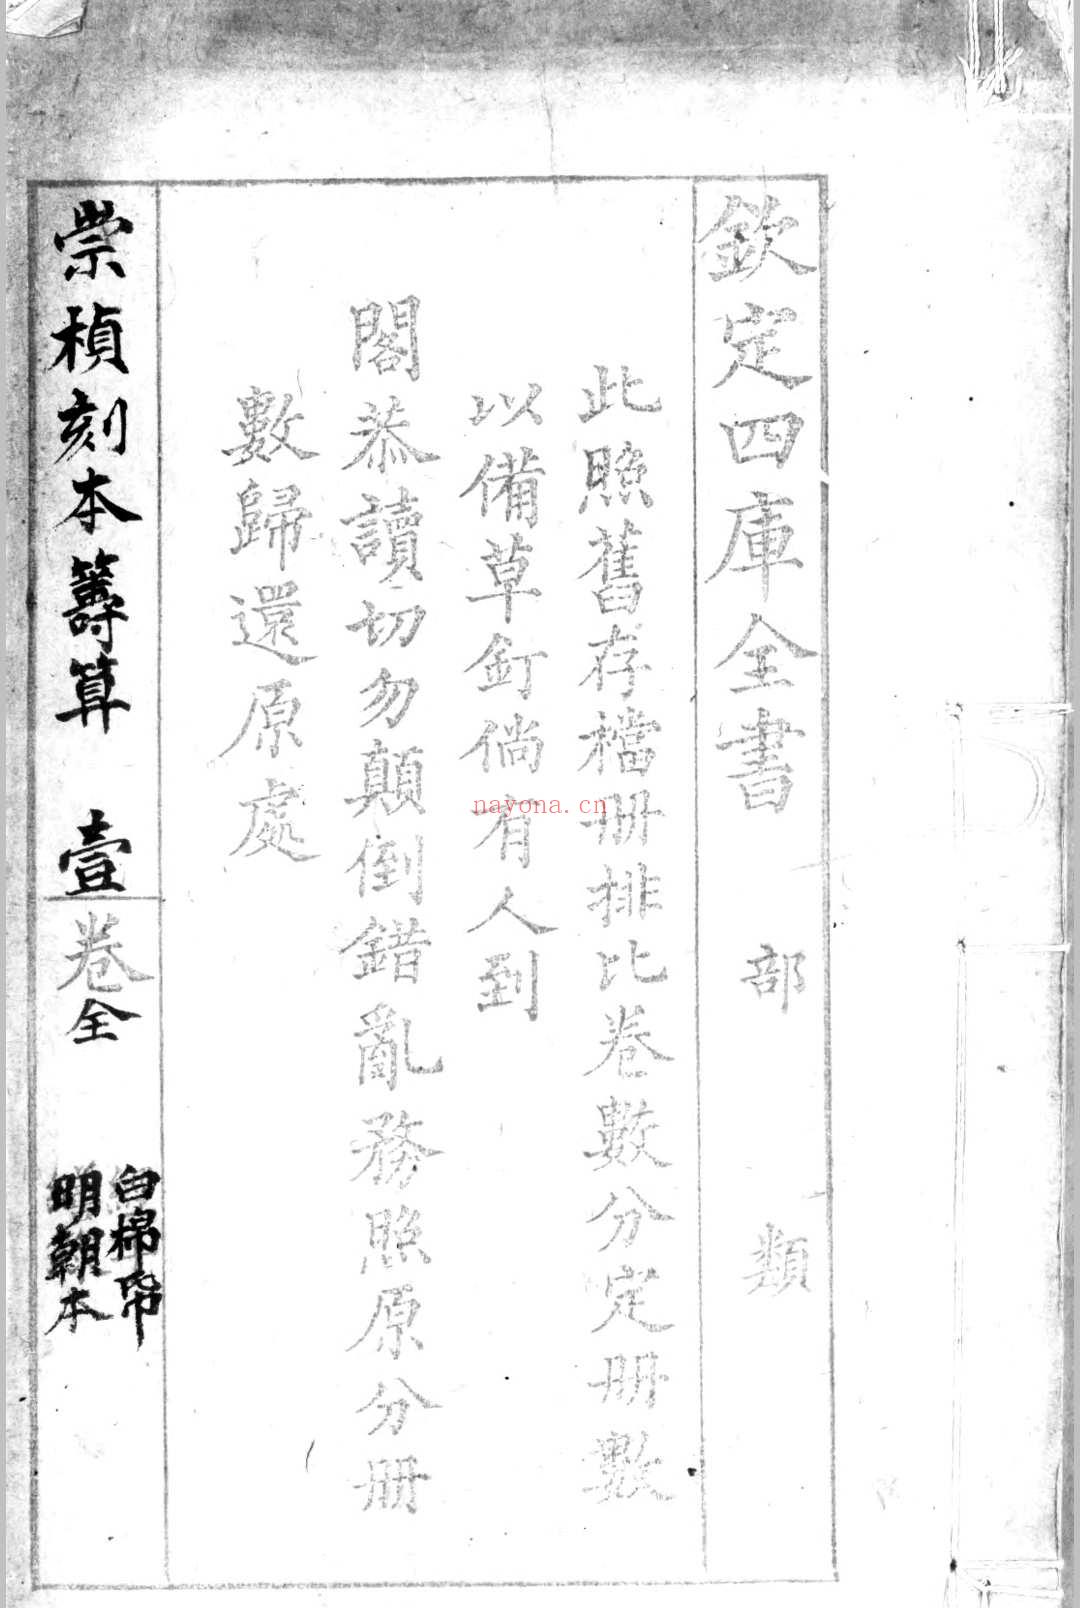 欽定四庫全書 部 類
此照舊存檔册排比卷數分定册數
以備草釘倘有人到
閣恭讀切勿顛倒錯亂務照原分册
數歸還原處
崇禎刻本籌算 壹卷全
白棉帋
明朝本
nayona.cn